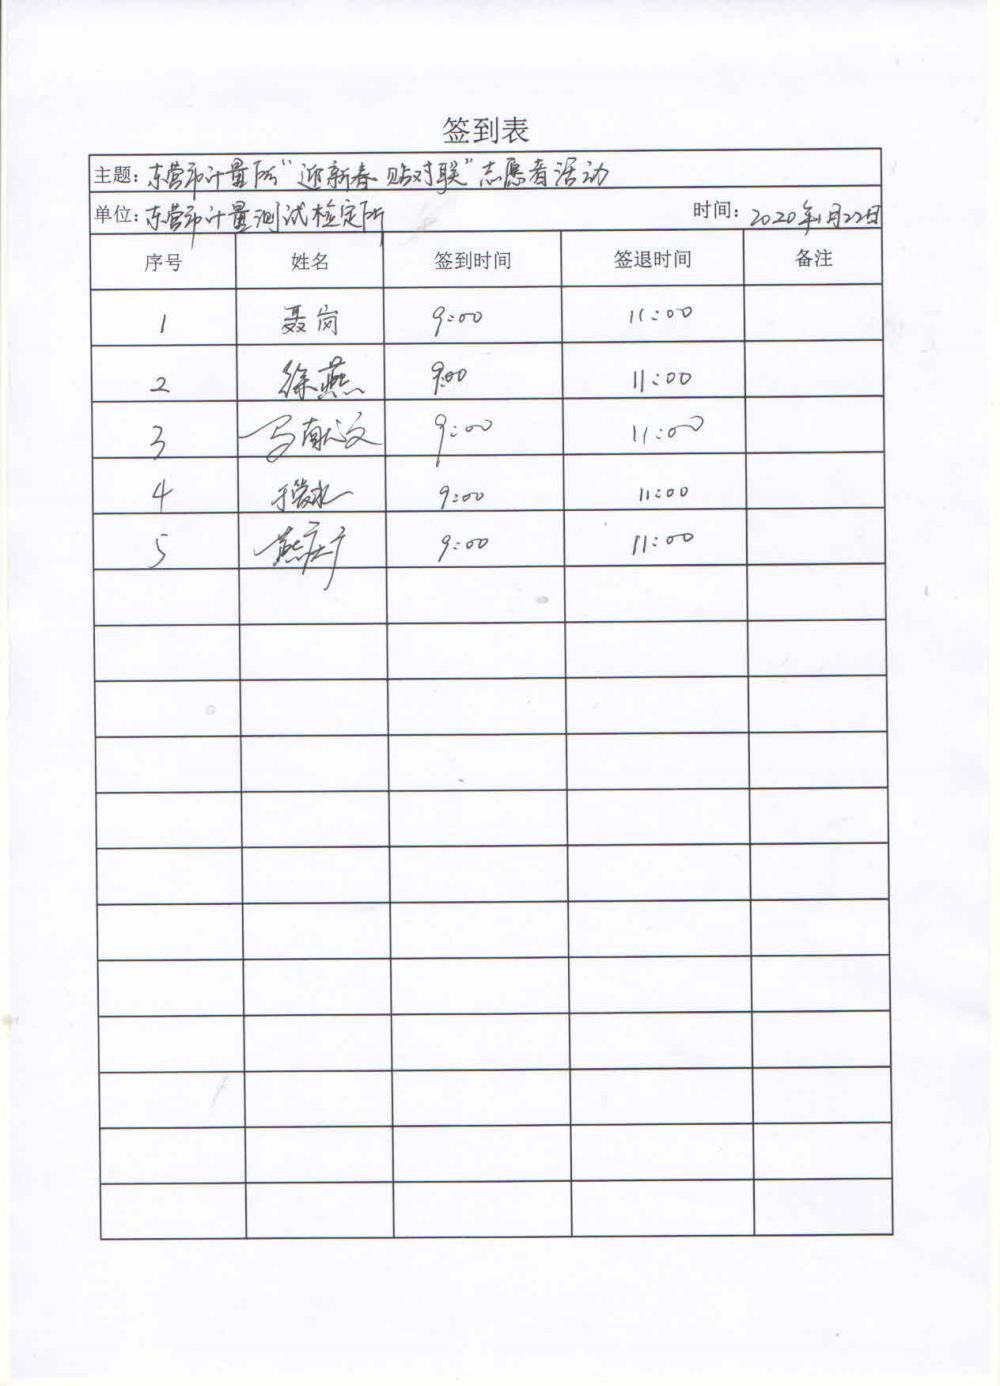 签到表
主题: 东营市计量所“迎新春 贴对联”志愿者活动
单位: 东营市计量测试检定所 时间: 2020年1月22日
序号 姓名 签到时间 签退时间 备注
1 聂岗 9:00 11:00
2 徐燕 9:00 11:00
3 马献文 9:00 11:00
4 9:00 11:00
5 9:00 11:00